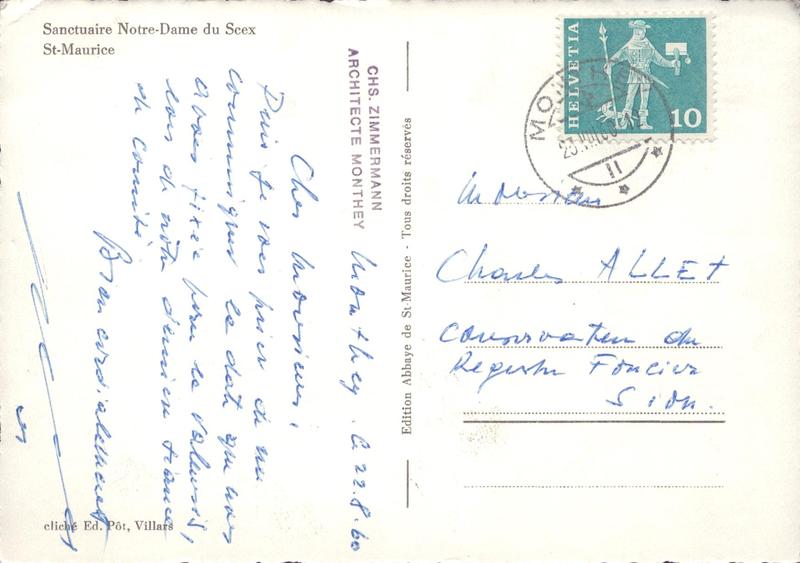 Sanctuaire Notre-Dame du Scex
St-Maurice
CHS. ZIMMERMANN
ARCHITECTE MONTHEY
Monthey, le 22.8.60
Cher Monsieur,
Puis je vous prier de me
communiquer la date que nous
avons fixée pour le Valaisis,
lors de notre dernière séance
de comité
Bien cordialement
cliché Ed. Pôt, Villars
Edition Abbaye de St-Maurice - Tous droits réservés
HELVETIA
10
MONTHEY
23.VIII.60
Monsieur
Charles ALLET
Conservateur du
Registre Foncier
Sion.